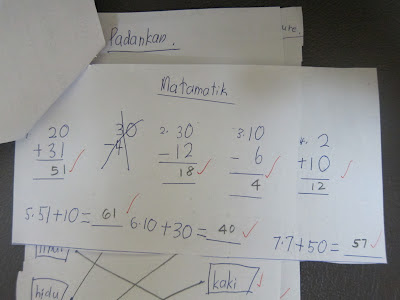 Padankan.
ure.
Matamatik
20 30 2. 30 3. 10 4. 2
+31 -4 -12 - 6 +10
51 18 4 12
5. 51+10= 61 6. 10+30= 40
7. 7+50= 57
hidu
kaki